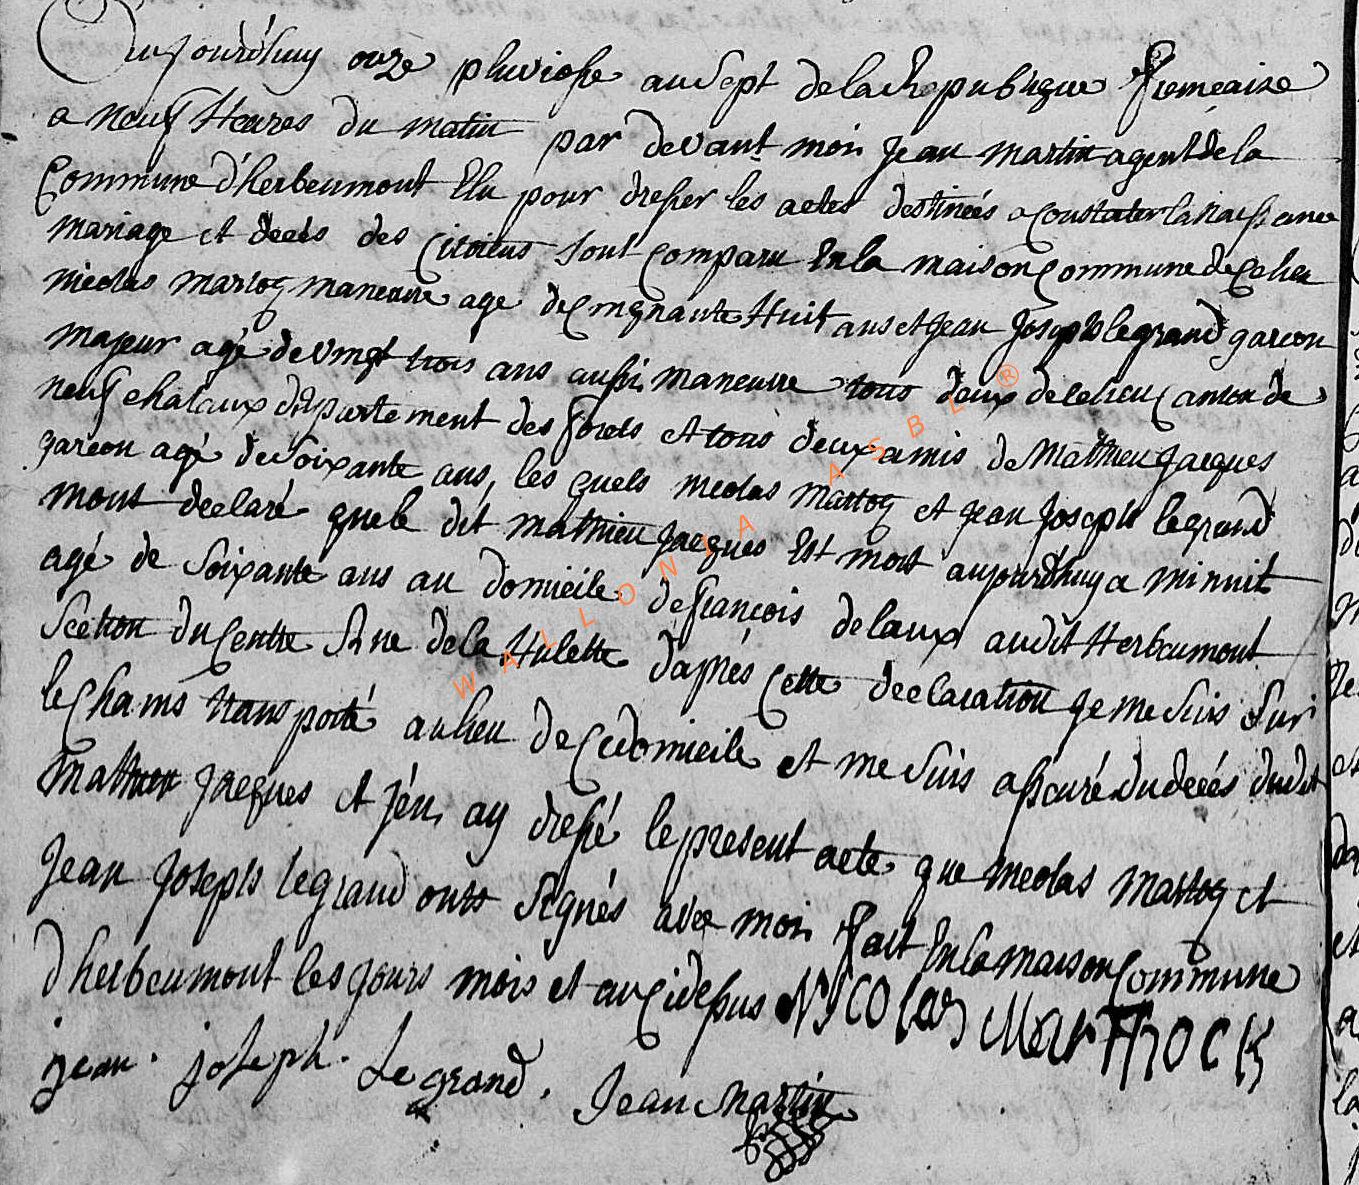 Aujourd'huy onze pluviose an Sept de la Republique francaise
a neuf Heures du matin par devant moi Jean Martin agent de la
Commune d'herbeumont Elu pour dresser les actes destinés a constater la naissance
mariage et decés des citoiens sont comparu En la maison commune de ce lieu
nicolas martoq maneuvre agé de cinquante Huit ans et Jean Joseph legrand garcon
majeur agé de vingt trois ans aussi maneuvre tous deux de ce lieu canton de
neufchataux departement des forets et tous deux amis de Mathieu Jacques
garcon agé de Soixante ans, les quels nicolas martoq et Jean Joseph legrand
mont declaré que le dit mathieu Jacques Est mort aujourdhuy a minuit
agé de Soixante ans au domicile de francois delaux audit Herbeumont
Section du Centre Rue de la Hulette daprés Cette declaration je me suis Sur
le Chams transporté au lieu de ce domicile et me suis assuré du decés dudit
Mathieu Jacques et j'en ay dressé le present acte que nicolas martoq et
Jean Joseph legrand onts Signés avec moi fait En la maison commune
d'herbeumont les jours mois et an ci dessus NICOlas MarTHOCK
jean . joseph . Le grand . Jean Martin
WALLONIA ASBL ®